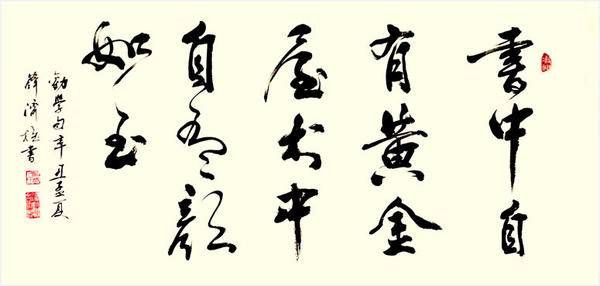 書中自
有黄金
屋书中
自有颜
如玉
勸學句辛丑孟夏
薛濟書